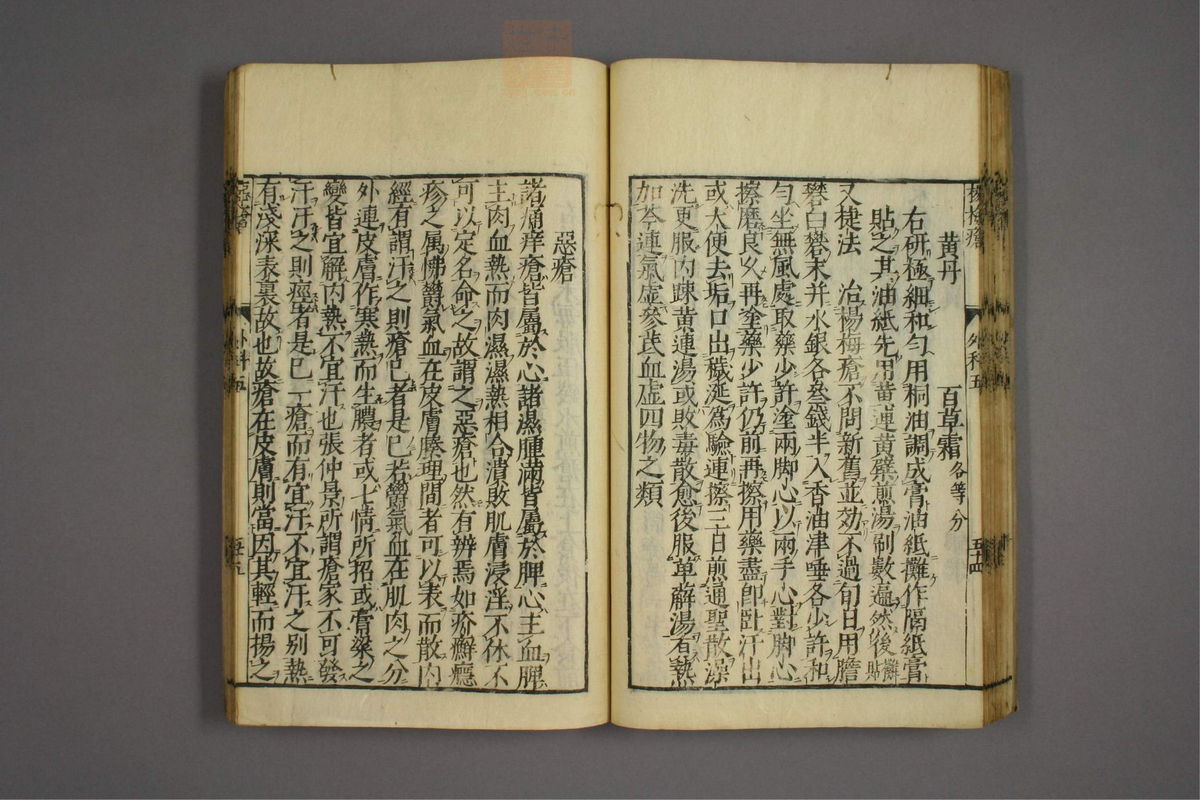 黄丹　百草霜各等分
右研極細和勻用桐油調成膏油紙攤作隔紙膏
貼之其油紙先用黄連黄蘗煎湯刷數遍然後攤貼
又捷法　治楊梅瘡不問新舊並効不過旬日用膽
礬白礬末并水銀各叄錢半入香油津唾各少許和
勻坐無風處取藥少許塗兩脚心以兩手心對脚心
擦磨良久再塗藥少許仍前再擦用藥盡卽臥汗出
或大便去垢口出穢涎為驗連擦三日煎通聖散澡
洗更服内踈黄連湯或敗毒散愈後服萆薢湯有熱
加芩連氣虛參茋血虚四物之類
楊梅瘡
外科五
五十四
惡瘡
諸痛痒瘡皆屬於心諸濕腫滿皆屬於脾心主血脾
主肉血熱而肉濕濕熱相合潰敗肌膚浸淫不休不
可以定名命之故謂之惡瘡也然有辨焉如疥癬癮
疹之属怫欝氣血在皮膚腠理間者可以表而散内
經有謂汗之則瘡已者是已若欝氣血在肌肉之分
外連皮膚作寒熱而生膿者或七情所招或膏粱之
變皆宜解内熱不宜汗也張仲景所謂瘡家不可發
汗汗之則痙者是已一瘡而有宜汗不宜汗之别熱
有淺深表裏故也故瘡在皮膚則當因其輕而揚之
惡瘡
外科五